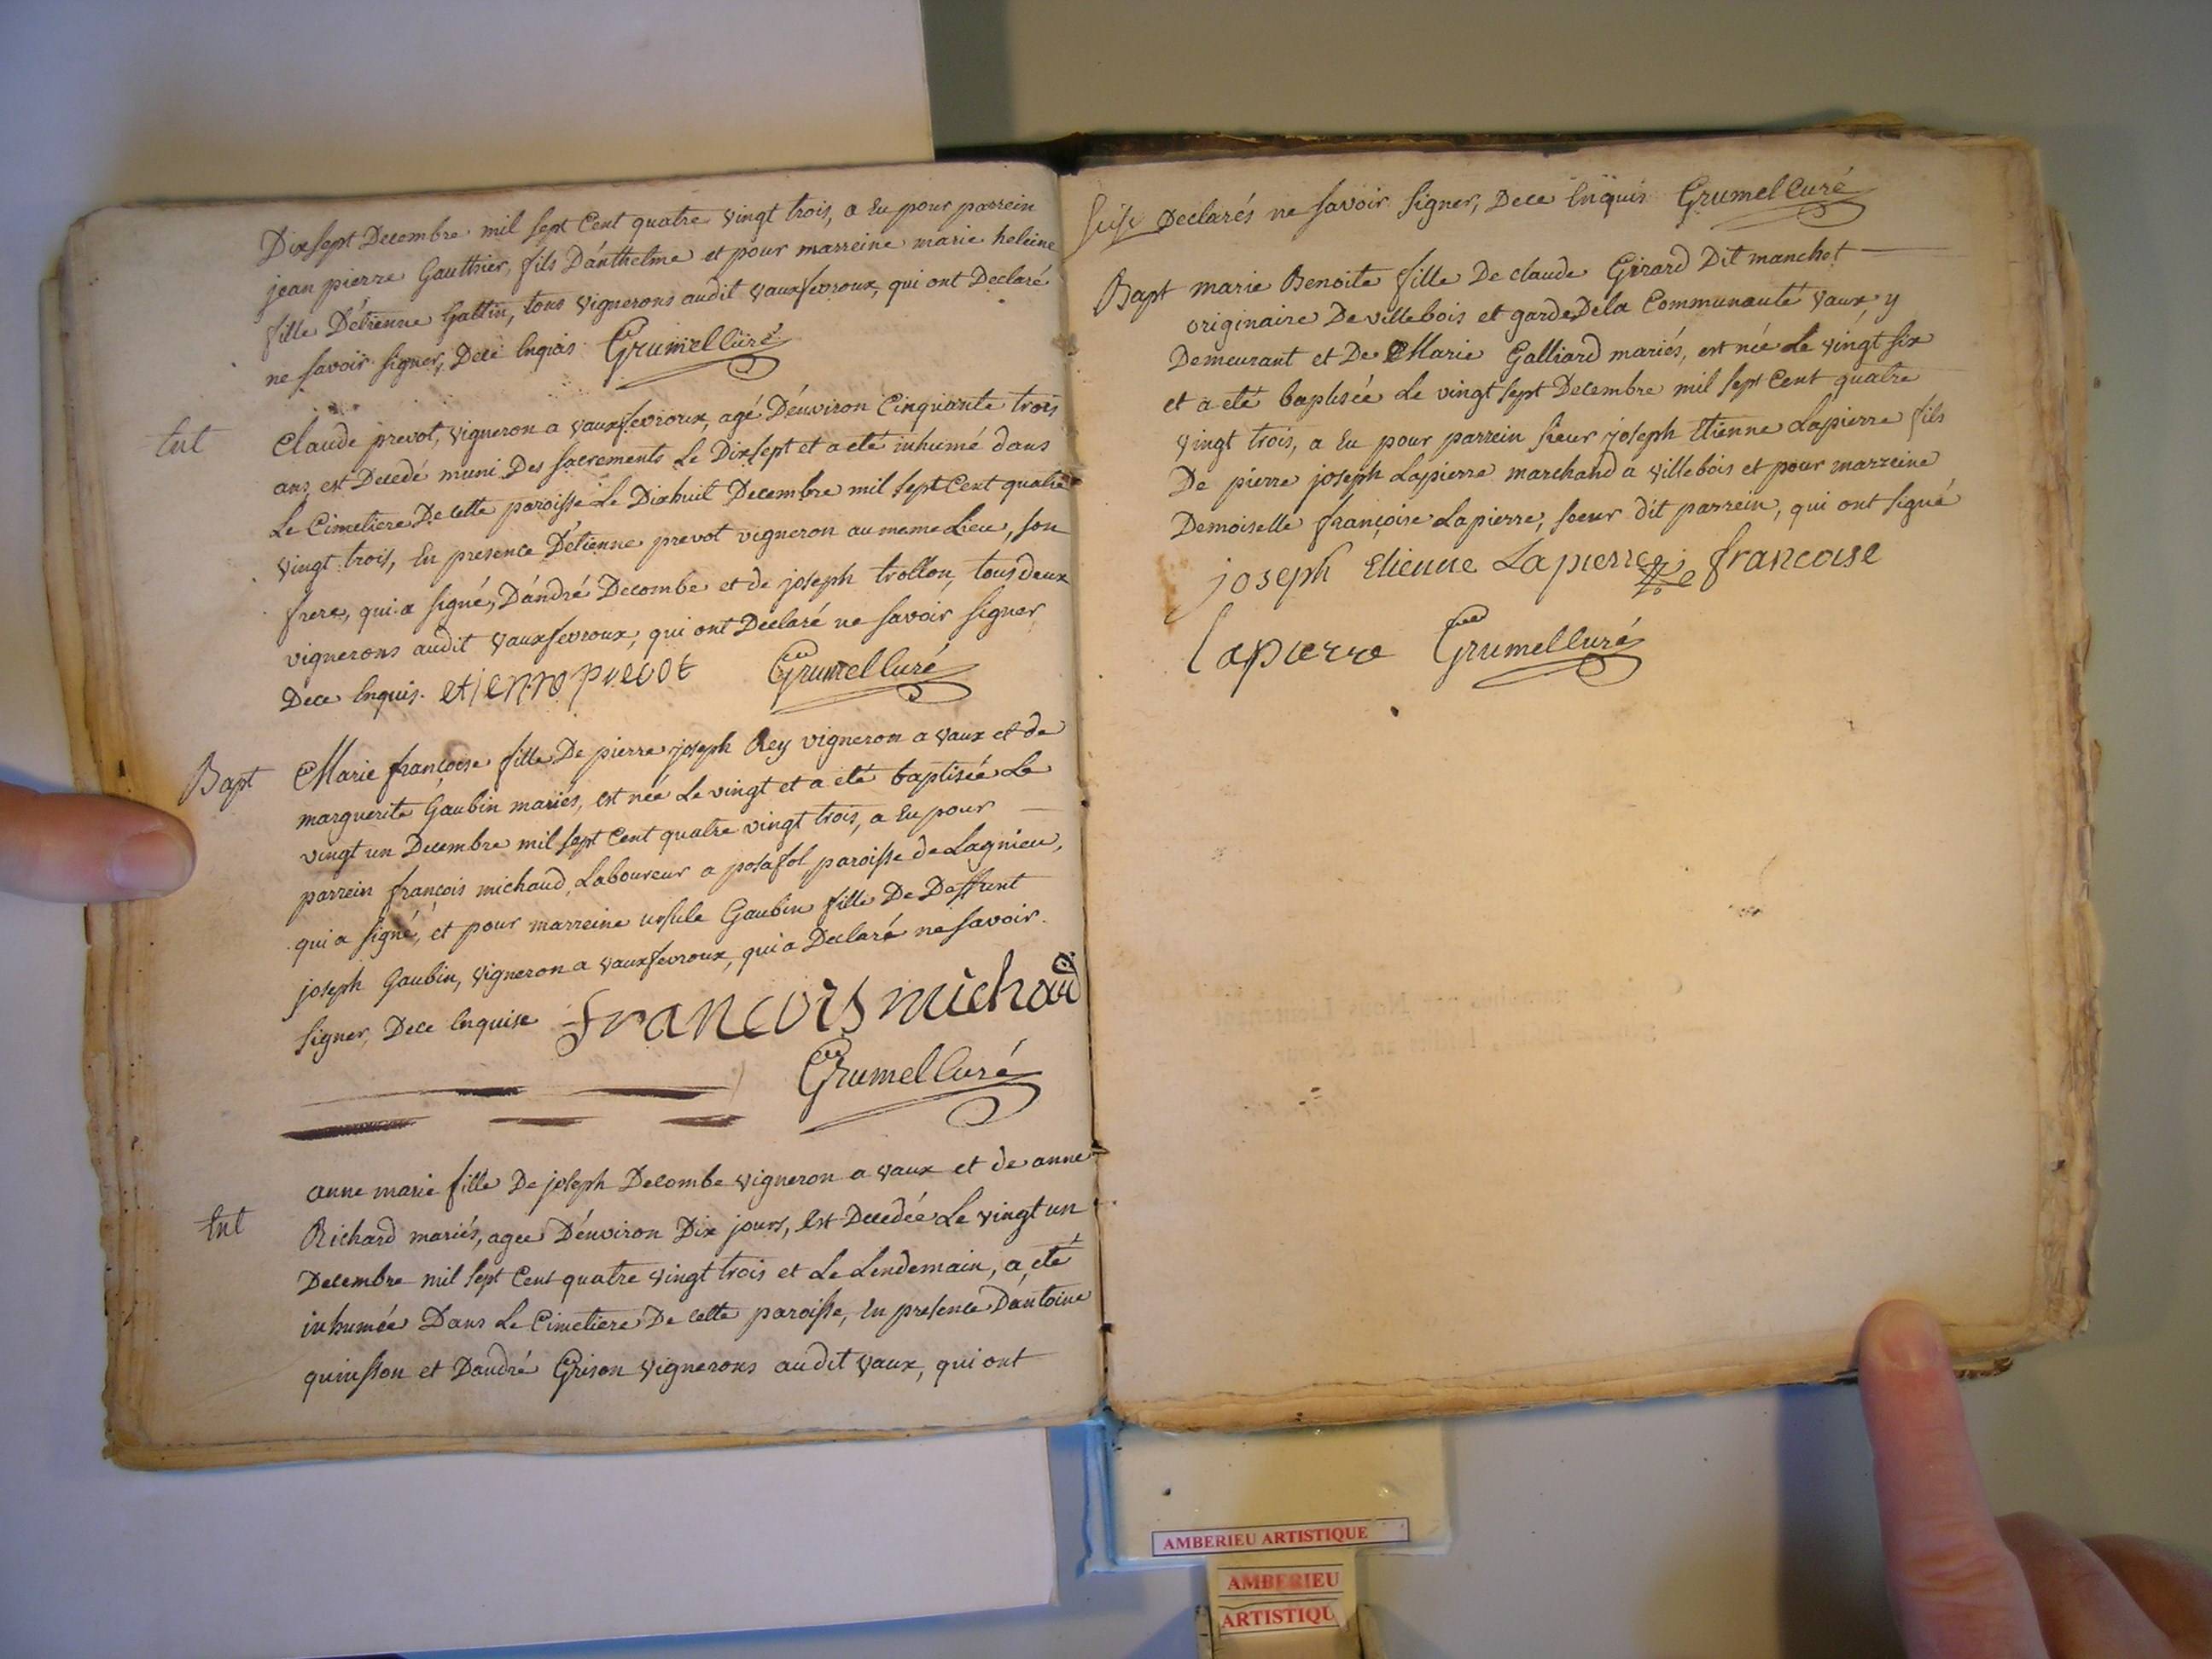 Dixsept Decembre mil sept Cent quatre vingt trois, a Eu pour parrein
jean pierre Gauthier, fils D'anthelme et pour marreine marie heleine
fille D'etienne Gattin, tous vignerons audit vauxfevroux, qui ont Declaré
ne savoir signer, Dece Enquis Grumel Curé
Ent
Claude prevot, vigneron a vauxfevroux, agé D'environ Cinquante trois
ans est Decedé muni Des sacrements Le Dixsept et a eté inhumé dans
Le Cimetiere De cette paroisse Le Dixhuit Decembre mil sept Cent quatre
vingt trois, En presence D'etienne prevot vigneron au meme Lieu, son
frere, qui a signé, D'andré Decombe et de joseph trollon, tous deux
vignerons audit vauxfevroux, qui ont Declaré ne savoir signer
Dece Enquis. etienne prevot Grumel Curé
Bapt
Marie françoise fille De pierre joseph Rey vigneron a vaux et de
marguerite Gaubin mariés, est née Le vingt et a eté baptisée Le
vingt un Decembre mil sept Cent quatre vingt trois, a Eu pour
parrein françois michaud, Laboureur a posafol paroisse de Lagnieu,
qui a signé, et pour marreine ursule Gaubin fille De Deffunt
joseph Gaubin, vigneron a vauxfevroux, qui a Declaré ne savoir
signer, Dece Enquise francois michaud
Grumel Curé
Ent
anne marie fille De joseph Decombe vigneron a vaux et de anne
Richard mariés, agée D'environ Dix jours, Est Decedée Le vingt un
Decembre mil sept Cent quatre vingt trois et Le Lendemain, a eté
inhumée Dans Le Cimetiere De cette paroisse, En presence D'antoine
quinsson et D'andré Grison vignerons audit vaux, qui ont
Suite Declarés ne savoir signer, Dece Enquis Grumel Curé
Bapt marie Benoite fille De claude Girard Dit manchot
originaire De villebois et garde De la Communauté vaux, y
Demeurant et De Marie Galliard mariés, est née Le vingt six
et a eté baptisée Le vingt sept Decembre mil sept Cent quatre
vingt trois, a Eu pour parrein sieur joseph Etienne Lapierre fils
De pierre joseph Lapierre marchand a villebois et pour marreine
Demoiselle françoise Lapierre, soeur dit parrein, qui ont signé
joseph Etienne Lapierre francoise
lapierre Grumel Curé
AMBERIEU ARTISTIQUE
AMBERIEU
ARTISTIQU